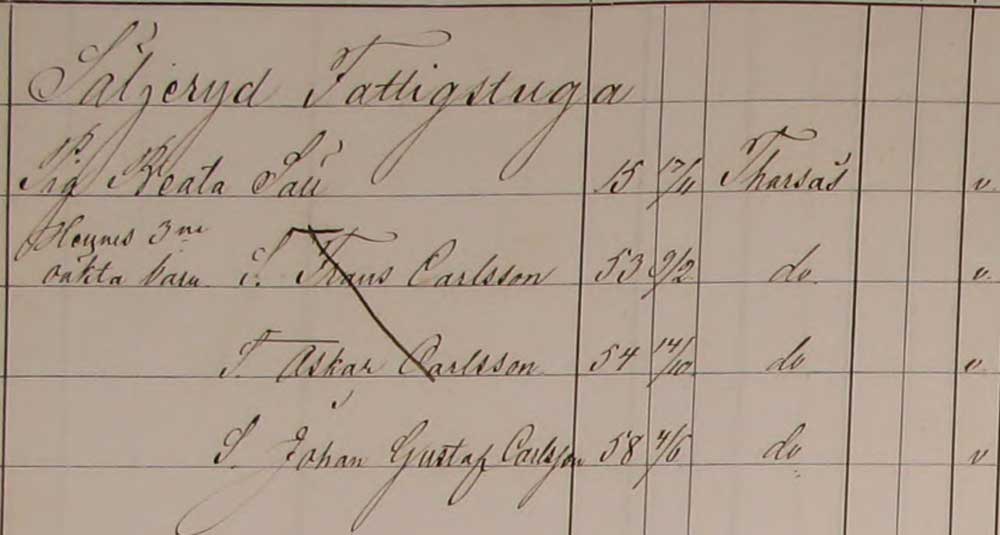 Säljeryd Fattigstuga
Pig Beata Sau 15 17/11 Tharsås v.
Hennes 3ne
oäkta barn S. Frans Carlsson 53 9/2 do. v.
S. Askar Carlsson 54 14/10 do v.
S. Johan Gustaf Carlsson 58 4/6 do v